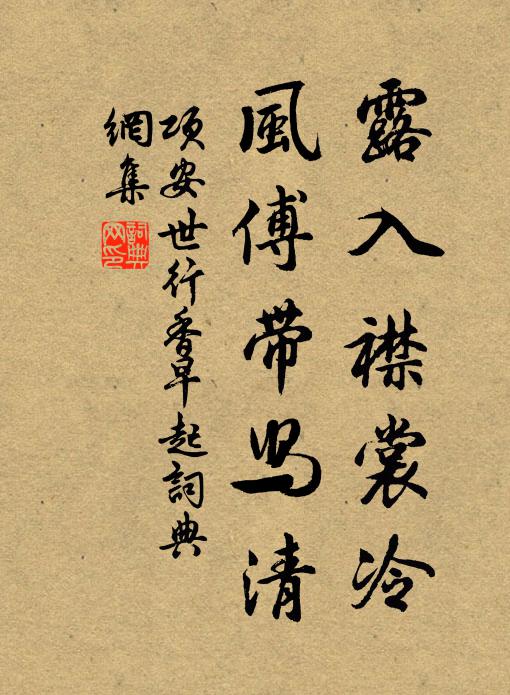 露入襟裳冷
風傅带舃清
项安世行香早起詞典
網集
詞典網印